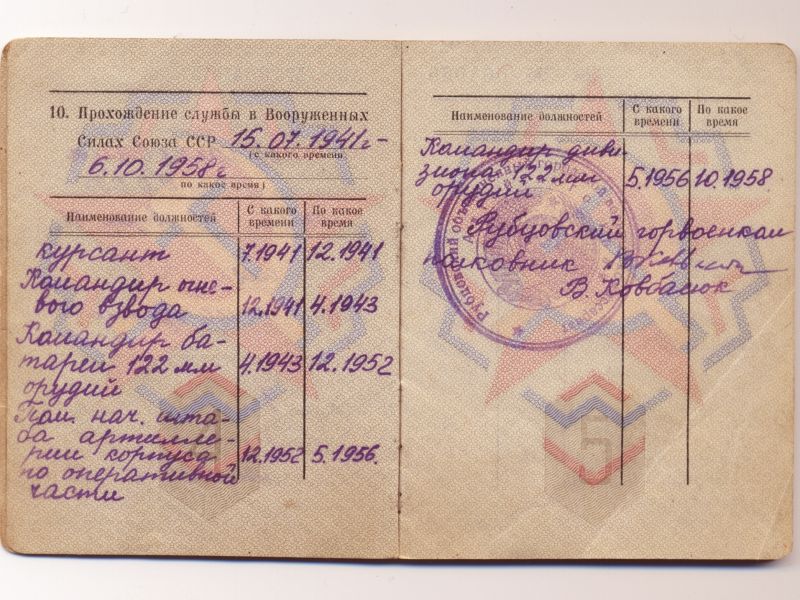 10. Прохождение службы в Вооруженных
Силах Союза ССР 15.07.1941г-
(с какого времени
6.10.1958г
по какое время)
Наименование должностей С какого времени По какое время
курсант 7.1941 12.1941
Командир огне-
вого взвода 12.1941 4.1943
Командир ба-
тареи 122 мм 4.1943 12.1952
орудий
Пом. нач. шта-
ба артилле-
рии корпуса 12.1952 5.1956.
по оперативной
части
Наименование должностей С какого времени По какое время
Командир диви-
зиона 122 мм 5.1956 10.1958
орудий
Рубцовский горвоенком
полковник
В. Ковбасюк
Рубцовский объ
5